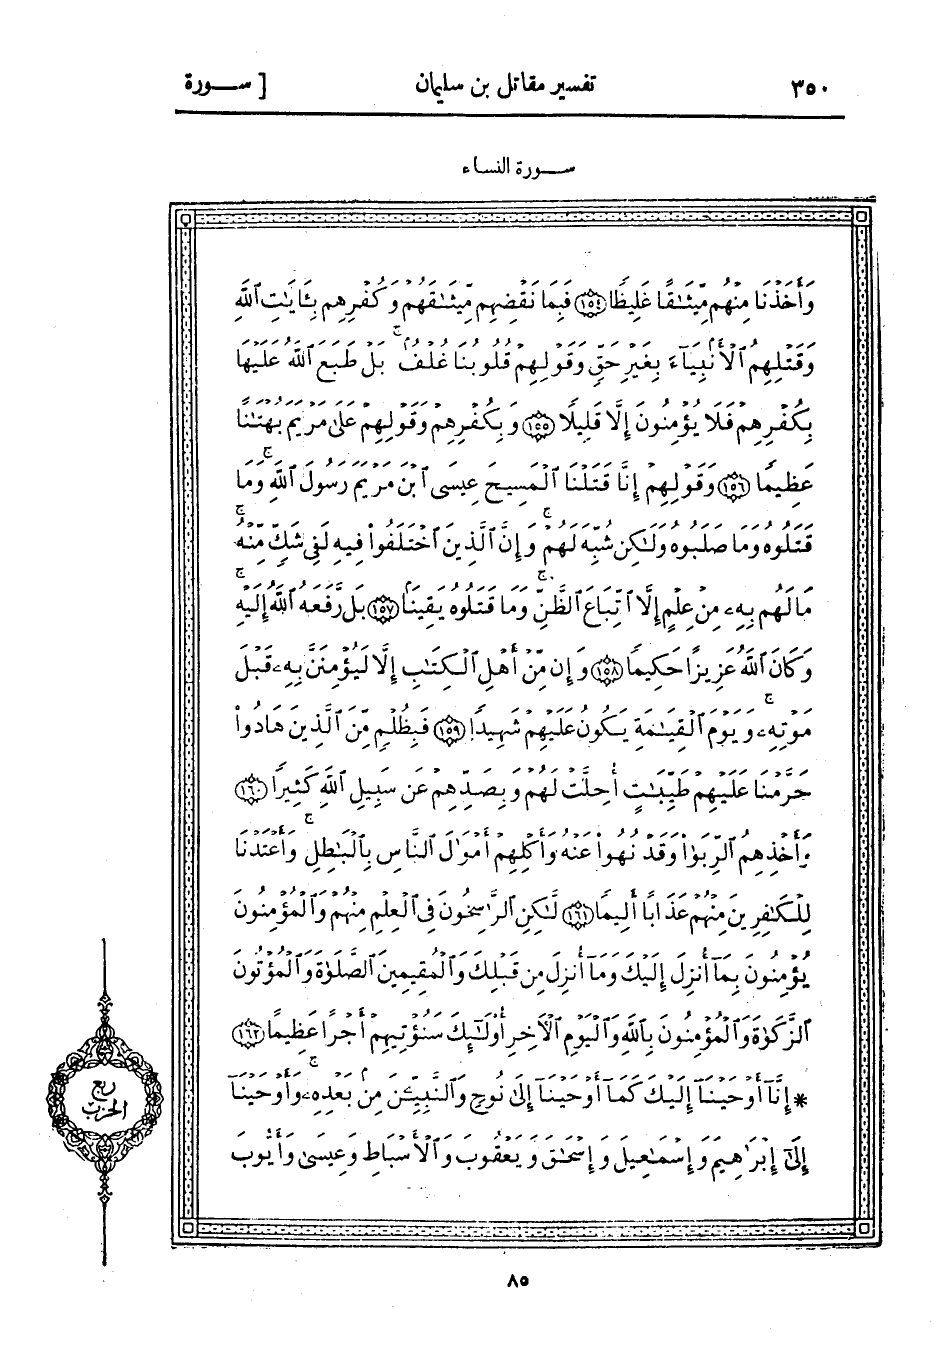 ٣٥٠ تفسير مقاتل بن سليمان [ ســورة
ســورة النساء
وَأَخَذْنَا مِنْهُم مِّيثَٰقًا غَلِيظًا ١٥٤ فَبِمَا نَقْضِهِم مِّيثَٰقَهُمْ وَكُفْرِهِم بِـَٔايَٰتِ ٱللَّهِ
وَقَتْلِهِمُ ٱلْأَنۢبِيَآءَ بِغَيْرِ حَقٍّ وَقَوْلِهِمْ قُلُوبُنَا غُلْفٌۢ ۚ بَلْ طَبَعَ ٱللَّهُ عَلَيْهَا
بِكُفْرِهِمْ فَلَا يُؤْمِنُونَ إِلَّا قَلِيلًا ١٥٥ وَبِكُفْرِهِمْ وَقَوْلِهِمْ عَلَىٰ مَرْيَمَ بُهْتَٰنًا
عَظِيمًا ١٥٦ وَقَوْلِهِمْ إِنَّا قَتَلْنَا ٱلْمَسِيحَ عِيسَى ٱبْنَ مَرْيَمَ رَسُولَ ٱللَّهِ ۚ وَمَا
قَتَلُوهُ وَمَا صَلَبُوهُ وَلَٰكِن شُبِّهَ لَهُمْ ۚ وَإِنَّ ٱلَّذِينَ ٱخْتَلَفُوا۟ فِيهِ لَفِى شَكٍّ مِّنْهُ ۚ
مَا لَهُم بِهِۦ مِنْ عِلْمٍ إِلَّا ٱتِّبَاعَ ٱلظَّنِّ ۚ وَمَا قَتَلُوهُ يَقِينًۢا ١٥٧ بَل رَّفَعَهُ ٱللَّهُ إِلَيْهِ ۚ
وَكَانَ ٱللَّهُ عَزِيزًا حَكِيمًا ١٥٨ وَإِن مِّنْ أَهْلِ ٱلْكِتَٰبِ إِلَّا لَيُؤْمِنَنَّ بِهِۦ قَبْلَ
مَوْتِهِۦ ۚ وَيَوْمَ ٱلْقِيَٰمَةِ يَكُونُ عَلَيْهِمْ شَهِيدًا ١٥٩ فَبِظُلْمٍ مِّنَ ٱلَّذِينَ هَادُوا۟
حَرَّمْنَا عَلَيْهِمْ طَيِّبَٰتٍ أُحِلَّتْ لَهُمْ وَبِصَدِّهِمْ عَن سَبِيلِ ٱللَّهِ كَثِيرًا ١٦٠
وَأَخْذِهِمُ ٱلرِّبَوٰا۟ وَقَدْ نُهُوا۟ عَنْهُ وَأَكْلِهِمْ أَمْوَٰلَ ٱلنَّاسِ بِٱلْبَٰطِلِ ۚ وَأَعْتَدْنَا
لِلْكَٰفِرِينَ مِنْهُمْ عَذَابًا أَلِيمًا ١٦١ لَّٰكِنِ ٱلرَّٰسِخُونَ فِى ٱلْعِلْمِ مِنْهُمْ وَٱلْمُؤْمِنُونَ
يُؤْمِنُونَ بِمَآ أُنزِلَ إِلَيْكَ وَمَآ أُنزِلَ مِن قَبْلِكَ وَٱلْمُقِيمِينَ ٱلصَّلَوٰةَ وَٱلْمُؤْتُونَ
ٱلزَّكَوٰةَ وَٱلْمُؤْمِنُونَ بِٱللَّهِ وَٱلْيَوْمِ ٱلْأَخِرِ أُو۟لَٰٓئِكَ سَنُؤْتِيهِمْ أَجْرًا عَظِيمًا ١٦٢
* إِنَّآ أَوْحَيْنَآ إِلَيْكَ كَمَآ أَوْحَيْنَآ إِلَىٰ نُوحٍ وَٱلنَّبِيِّـۧنَ مِنۢ بَعْدِهِۦ ۚ وَأَوْحَيْنَآ
إِلَىٰٓ إِبْرَٰهِيمَ وَإِسْمَٰعِيلَ وَإِسْحَٰقَ وَيَعْقُوبَ وَٱلْأَسْبَاطِ وَعِيسَىٰ وَأَيُّوبَ
ربع
الحزب
٨٥